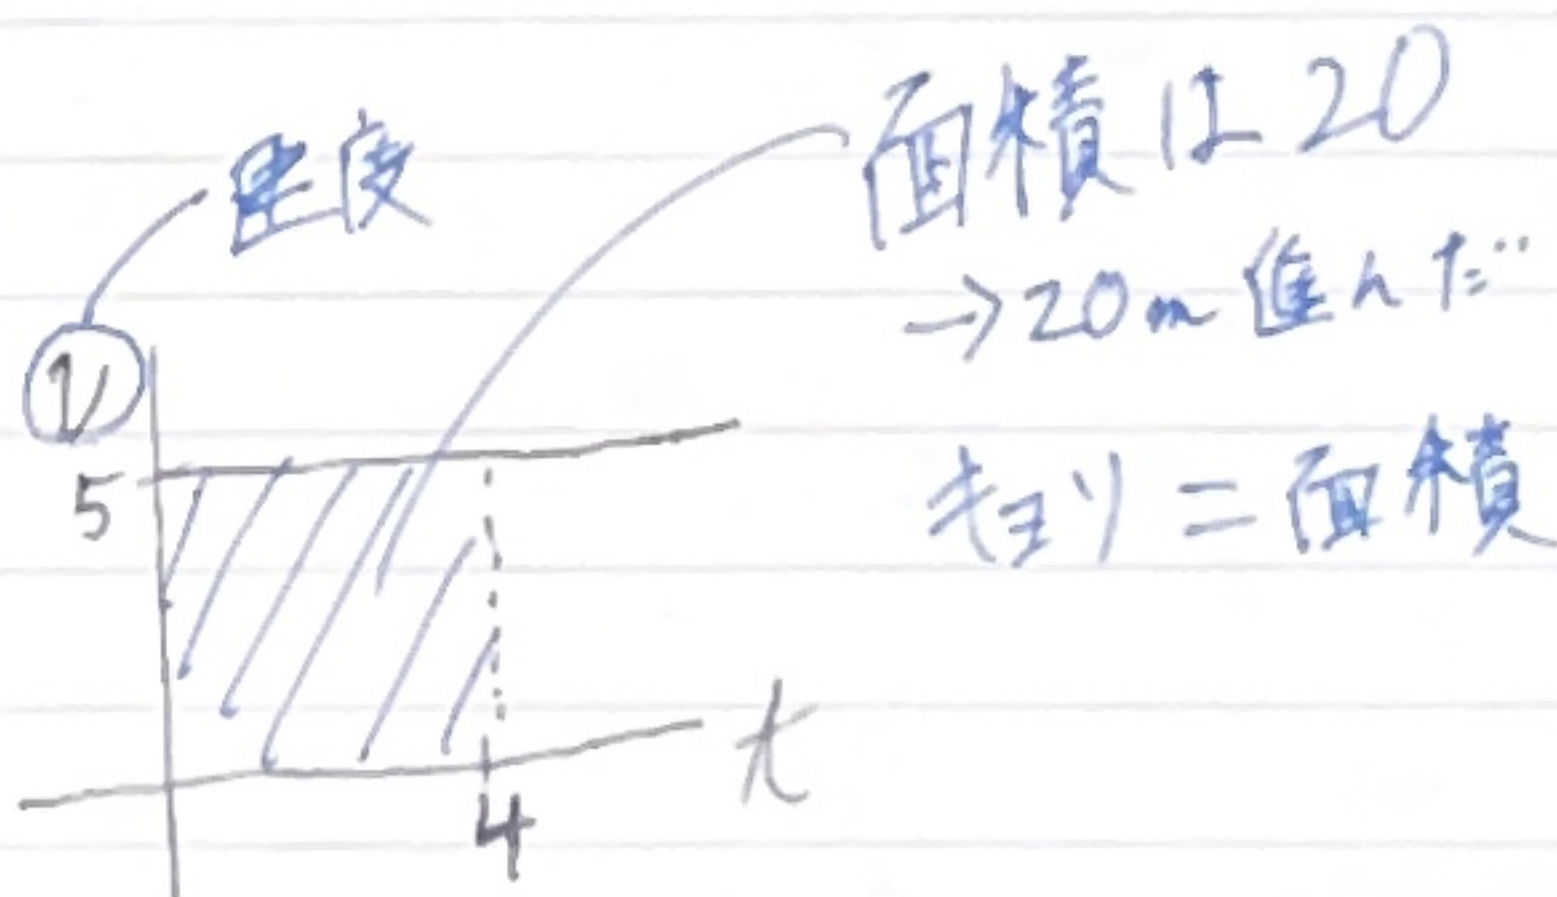 速度
面積は20
→20m進んだ
v
キョリ=面積
5
t
4